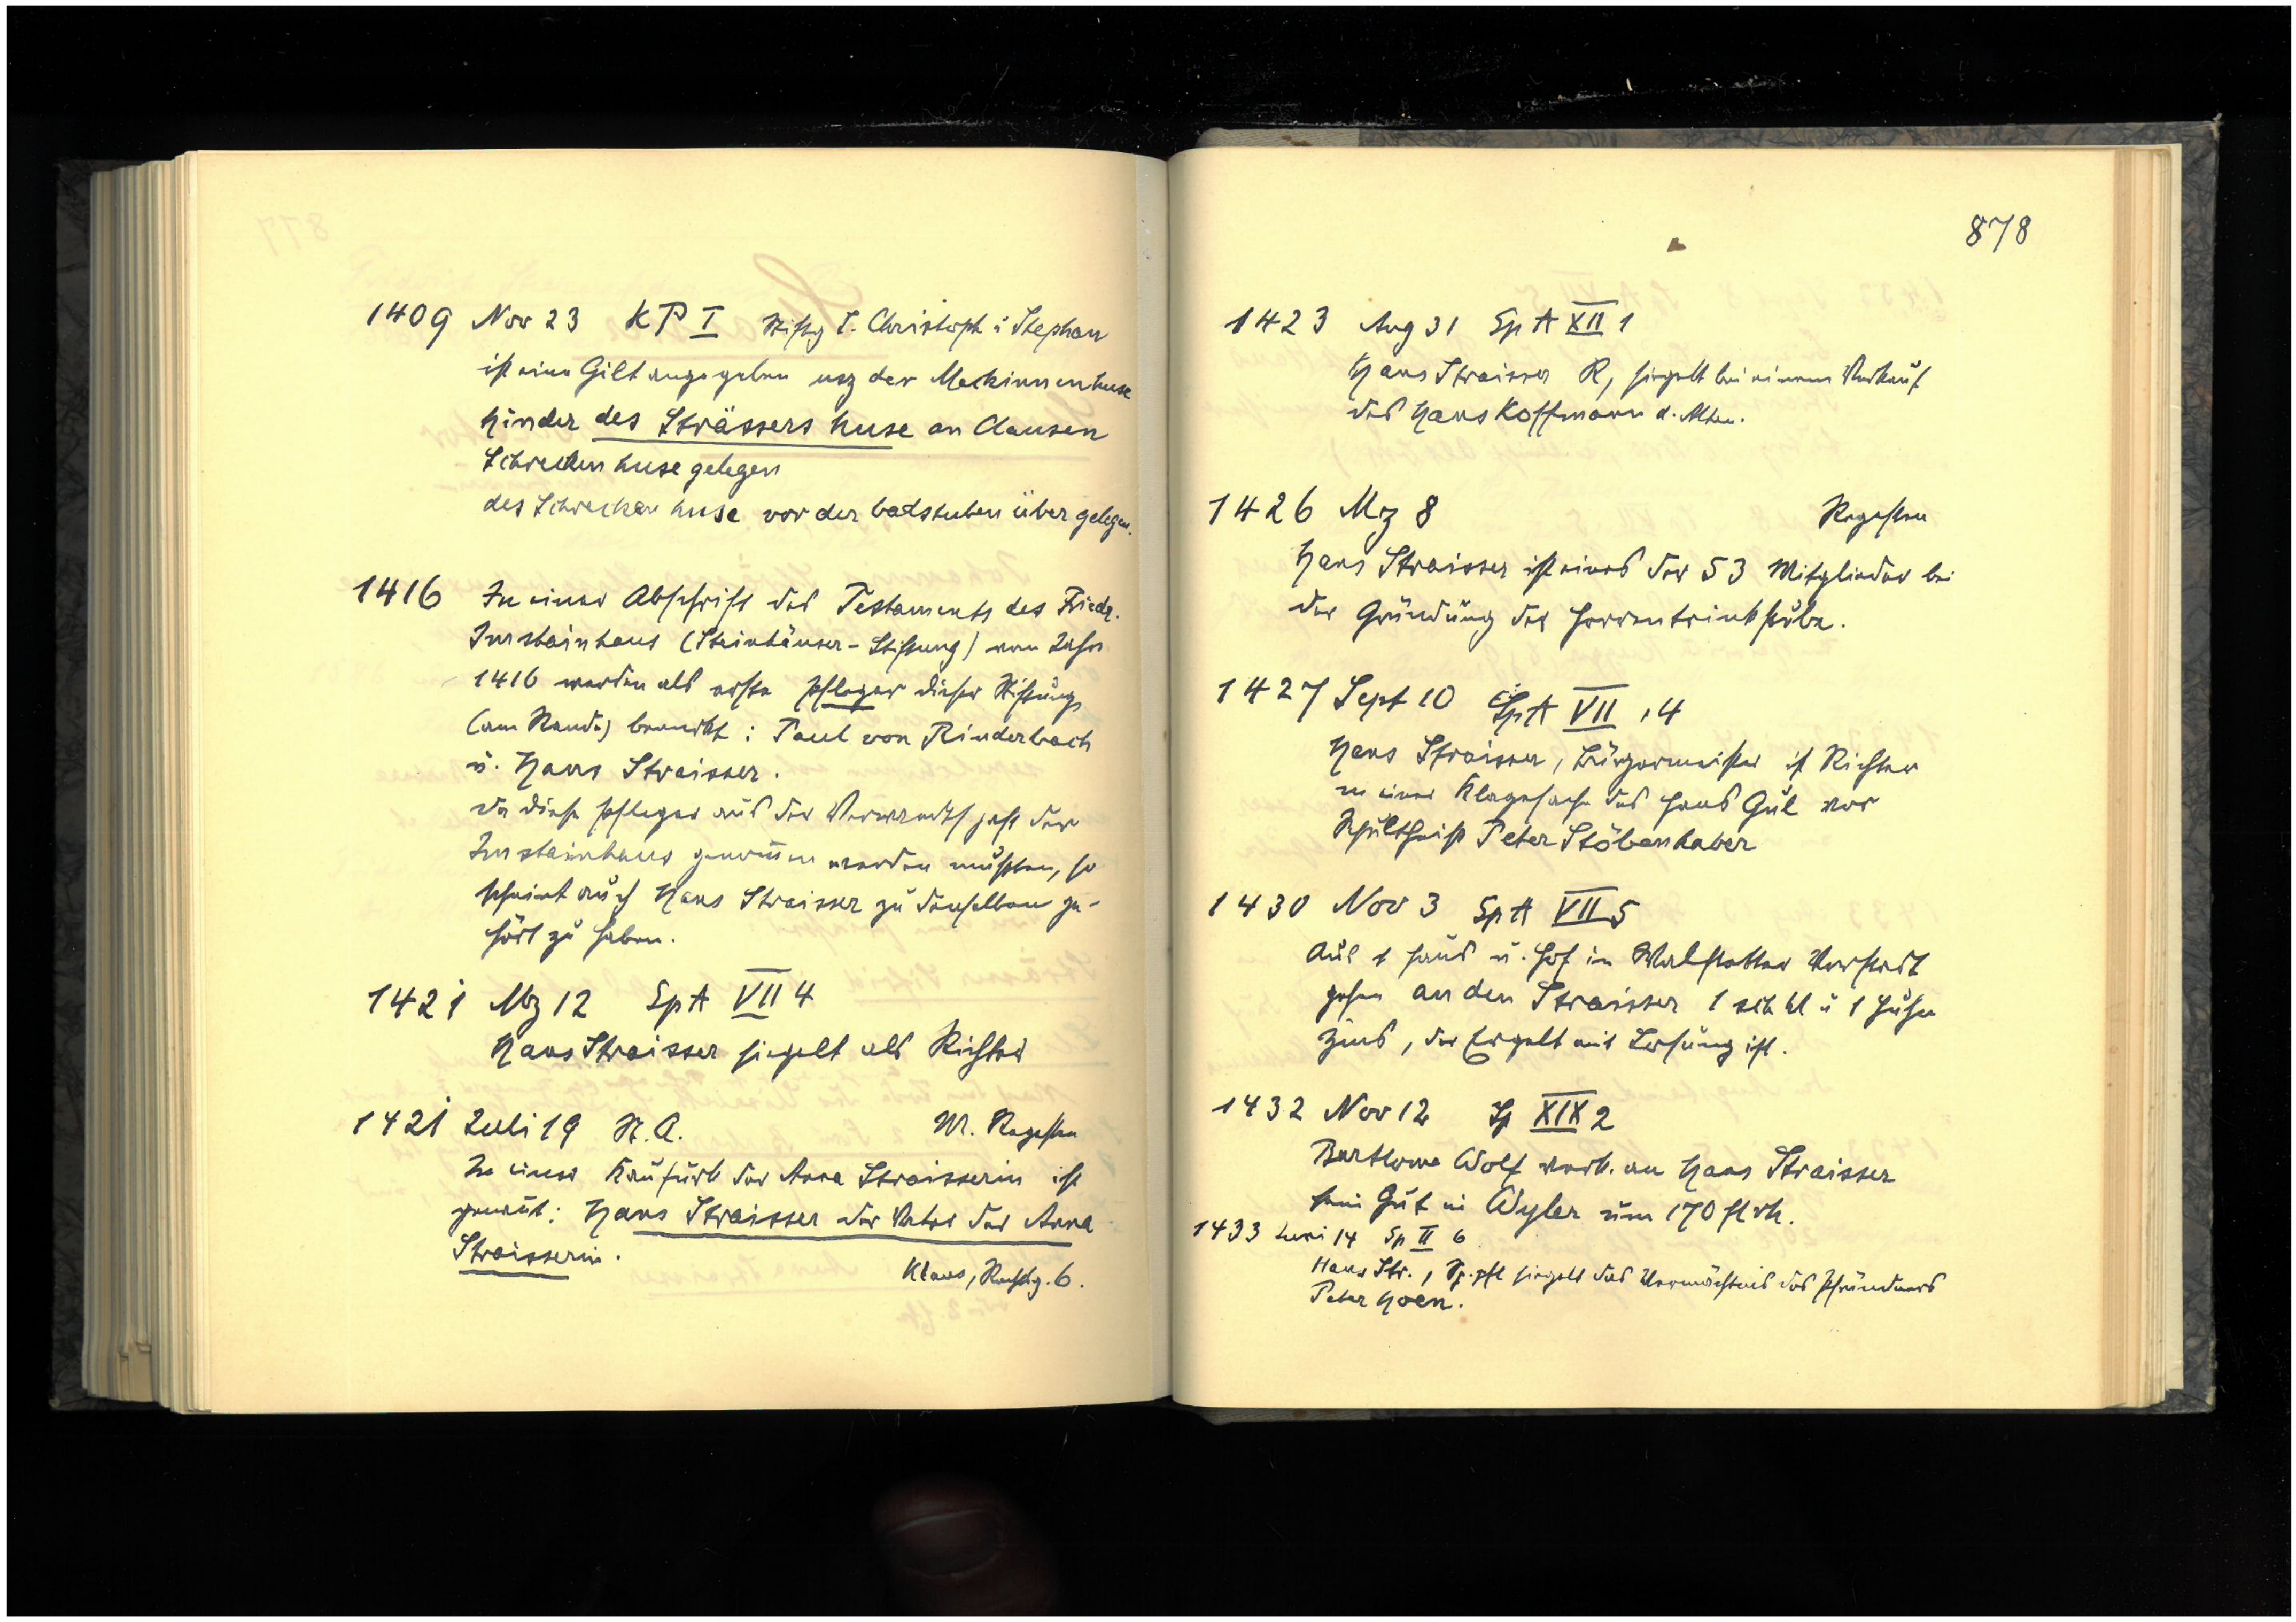 1409 Nov 23 KP I Stiftg S. Christoph u Stephan
ist eine Gilt angegeben usz der Meckinnen huse
hinder des Strässers huse an Clausen
Schrecken huse gelegen
des Schrecken huse vor der badstuben über gelegen.
1416 In einer Abschrift des Testaments des Friedr.
Imstainhaus (Steinhäuser-Stiftung) vom Jahr
1416 werden als erste Pfleger dieser Stiftung
(am Rande) bemerkt: Paul von Rinderbach
u. Hans Straisser.
Da diese Pfleger aus der Verwandtschaft der
Imstainhaus genommen werden mußten, so
scheint auch Hans Straisser zu denselben ge-
hört zu haben.
1421 Mz 12 SpA VII 4
Hans Straisser siegelt als Richter
1421 Juli 19 St. A. M. Regesten
In einer Kaufurk der Anna Straisserin ist
genannt: Hans Straisser der Vater der Anna
Straisserin.
Klaus, 6.
878
1423 Aug 31 SpA XII 1
Hans Straisser R, siegelt bei einem Verkauf
des Hans Koffmann d. Alten.
1426 Mz 8 Regesten
Hans Straisser ist eines der 53 Mitglieder bei
der Gründung der Herrentrinkstube.
1427 Sept 10 SpA VII, 4
Hans Straisser, Bürgermeister ist Richter
in einer Klagesache des Hans Gul vor
Schultheiß Peter Stöbenhaber
1430 Nov 3 SpA VII 5
Aus 1 Haus u. Hof in Walstetter Vorstadt
gehen an den Straisser 1 sch hl u 1 Huhn
Zins, der Ergelt mit Losung ist.
1432 Nov 12 Sp XIX 2
Bartlome Wolf verk. an Hans Straisser
sein Gut in Wyler um 170 fl rh.
1433 Juni 14 Sp II 6
Hans Str., Sp.pfl siegelt das Vermächtnis des Pfründners
Peter Hoen.